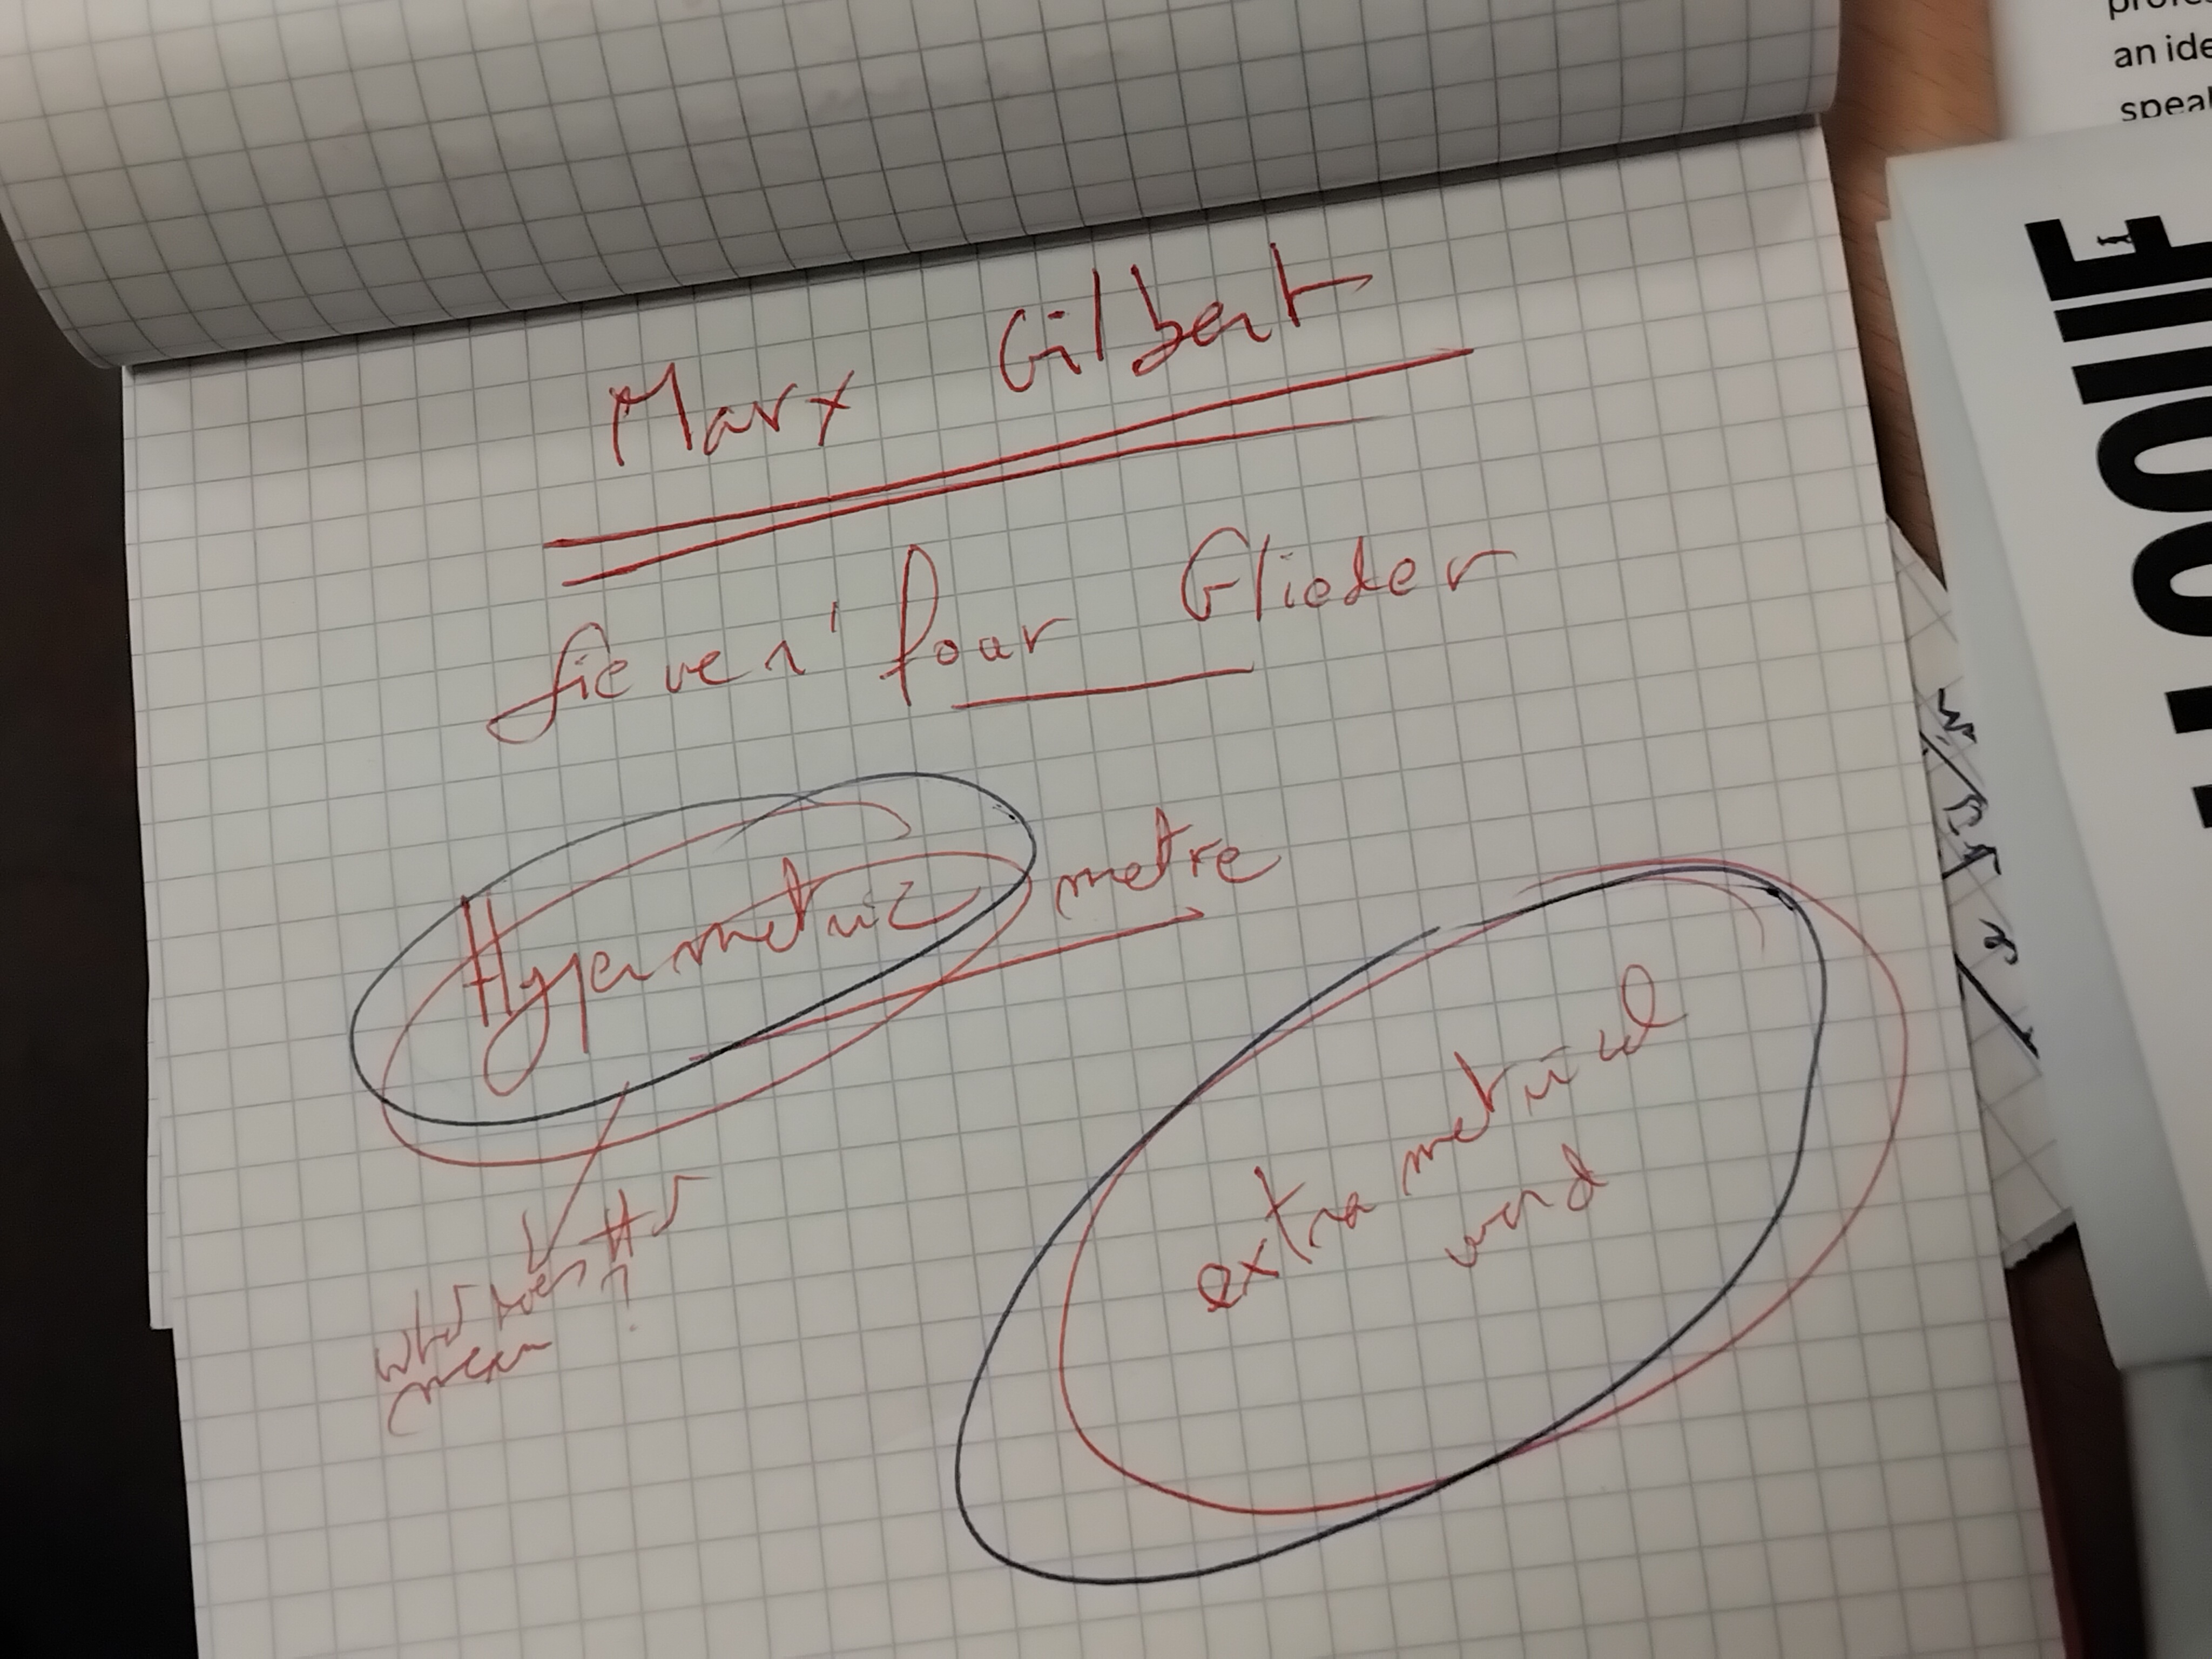 Marx Gilbert
Sieven' four Glieder
Hypermetric metre
what does this
mean ?
extra metrical
word
an ide
speak